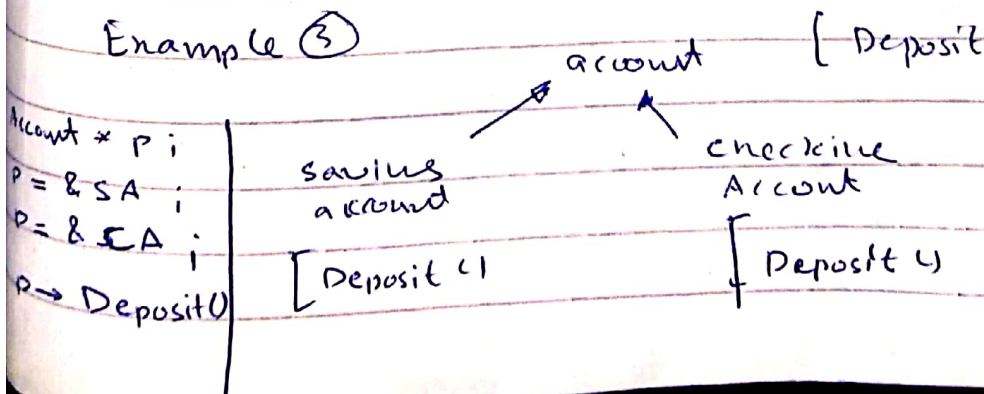 Example ③
account [ Deposit
Account * P ;
P = & SA ;
P = & CA ;
P → Deposit()
savings
account
checking
Account
[ Deposit ()
[ Deposit ()